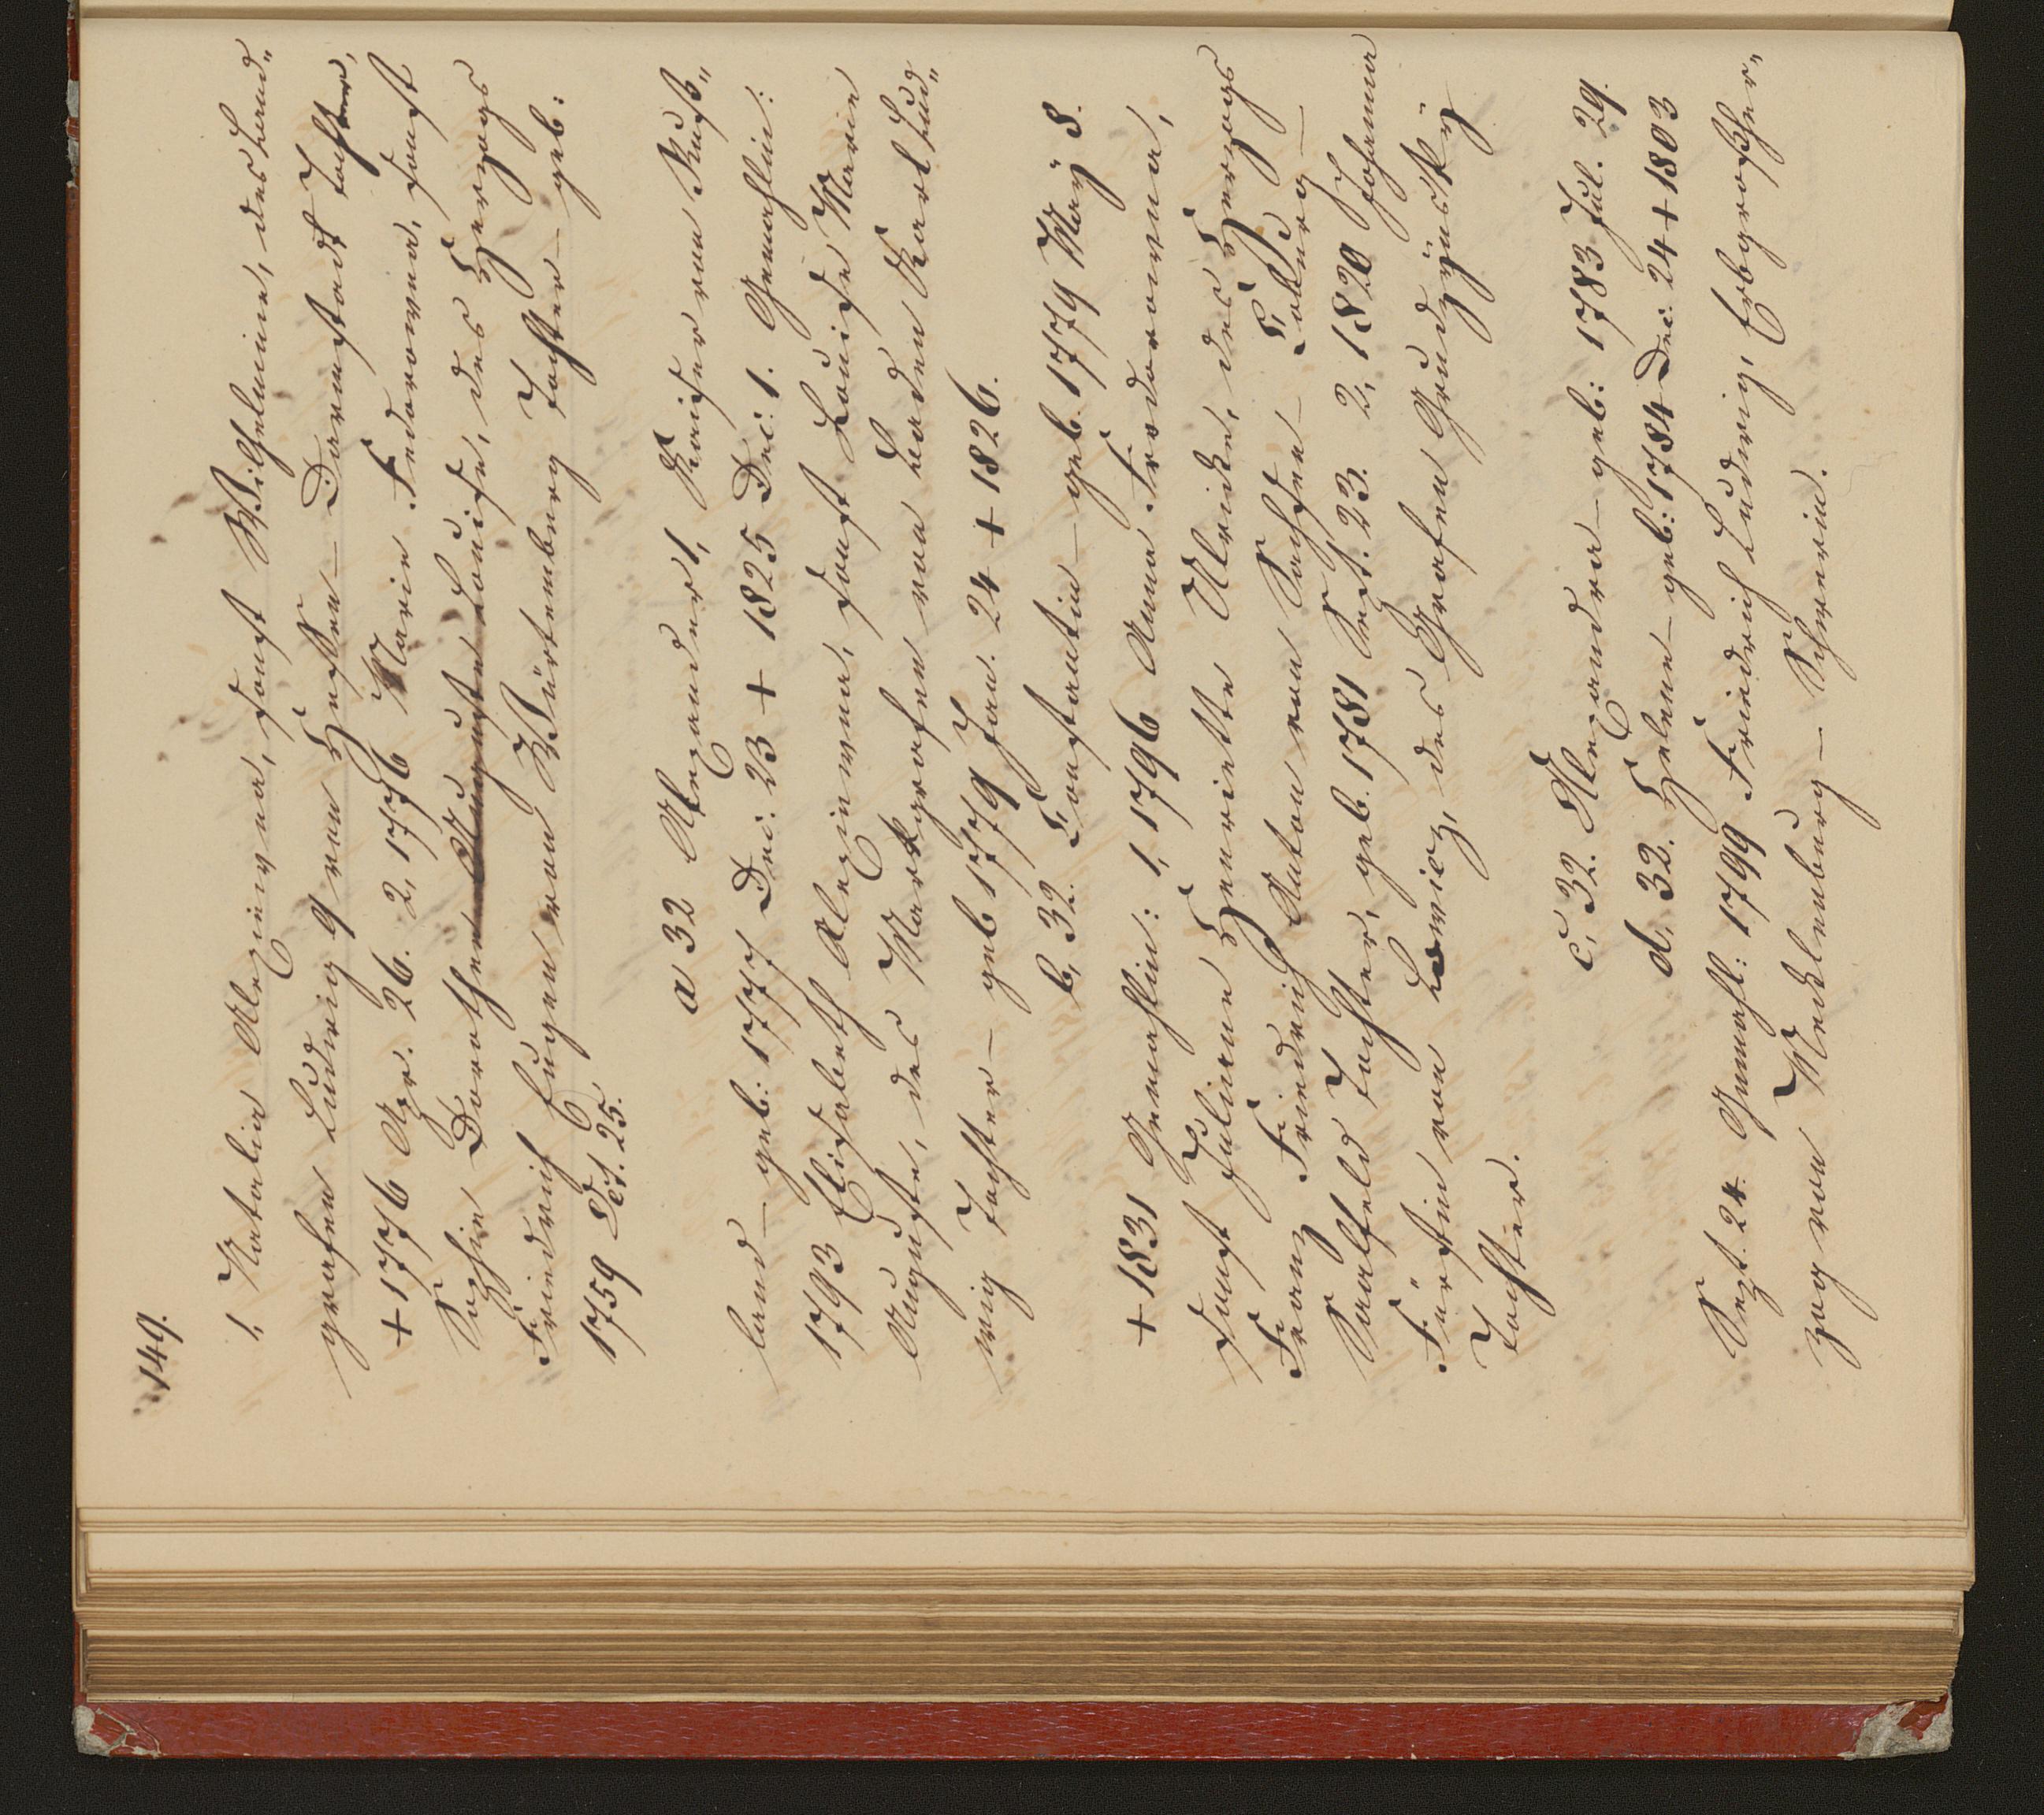 149.
1, Natalia Alexiewna, sonst Wilhelmine, des Land„
grafen Ludwig 9 von Hessen - Darmstadt Tochter,
+ 1776 Apr. 26. 2, 1776 Marie Fedorowna, sonst
Sophie Dorothea Auguste Louise, des Herzogs
Friedrich Eugen von Würtemberg Tochter - geb:
1759 Oct. 25.
a 32 Alexander 1, Kaiser von Ruß„
land - geb: 1777 Dec: 23 + 1825 Dec: 1. Gemahlin:
1793 Elisabeth Alexiewna, sonst Louise Marie
Auguste, des Markgrafen von Baden Karl Lud„
wig Tochter - geb 1779 Jan. 24 + 1826.
b, 32. Constantin - geb. 1779 May 8.
+ 1831 Gemahlin: 1, 1796 Anna Feodorowna,
sonst Juliane Henriette Ulricke, des Herzogs
Franz Friedrich Anton von Sachsen - Coburg -
Saalfeld Tochter, geb. 1781 Sept. 23. 2, 1820 Johanna
Fürstin von Lowicz, des Grafen Grudzÿnskÿ
Tochter.
c, 32. Alexandra - geb: 1783 Jul. 29.
d, 32. Helena - geb: 1784 Dec: 24 + 1803
Sept. 24. Gemahl: 1799 Friedrich Ludwig, Erbgroßher„
zog von Mecklenburg - Schwerin.